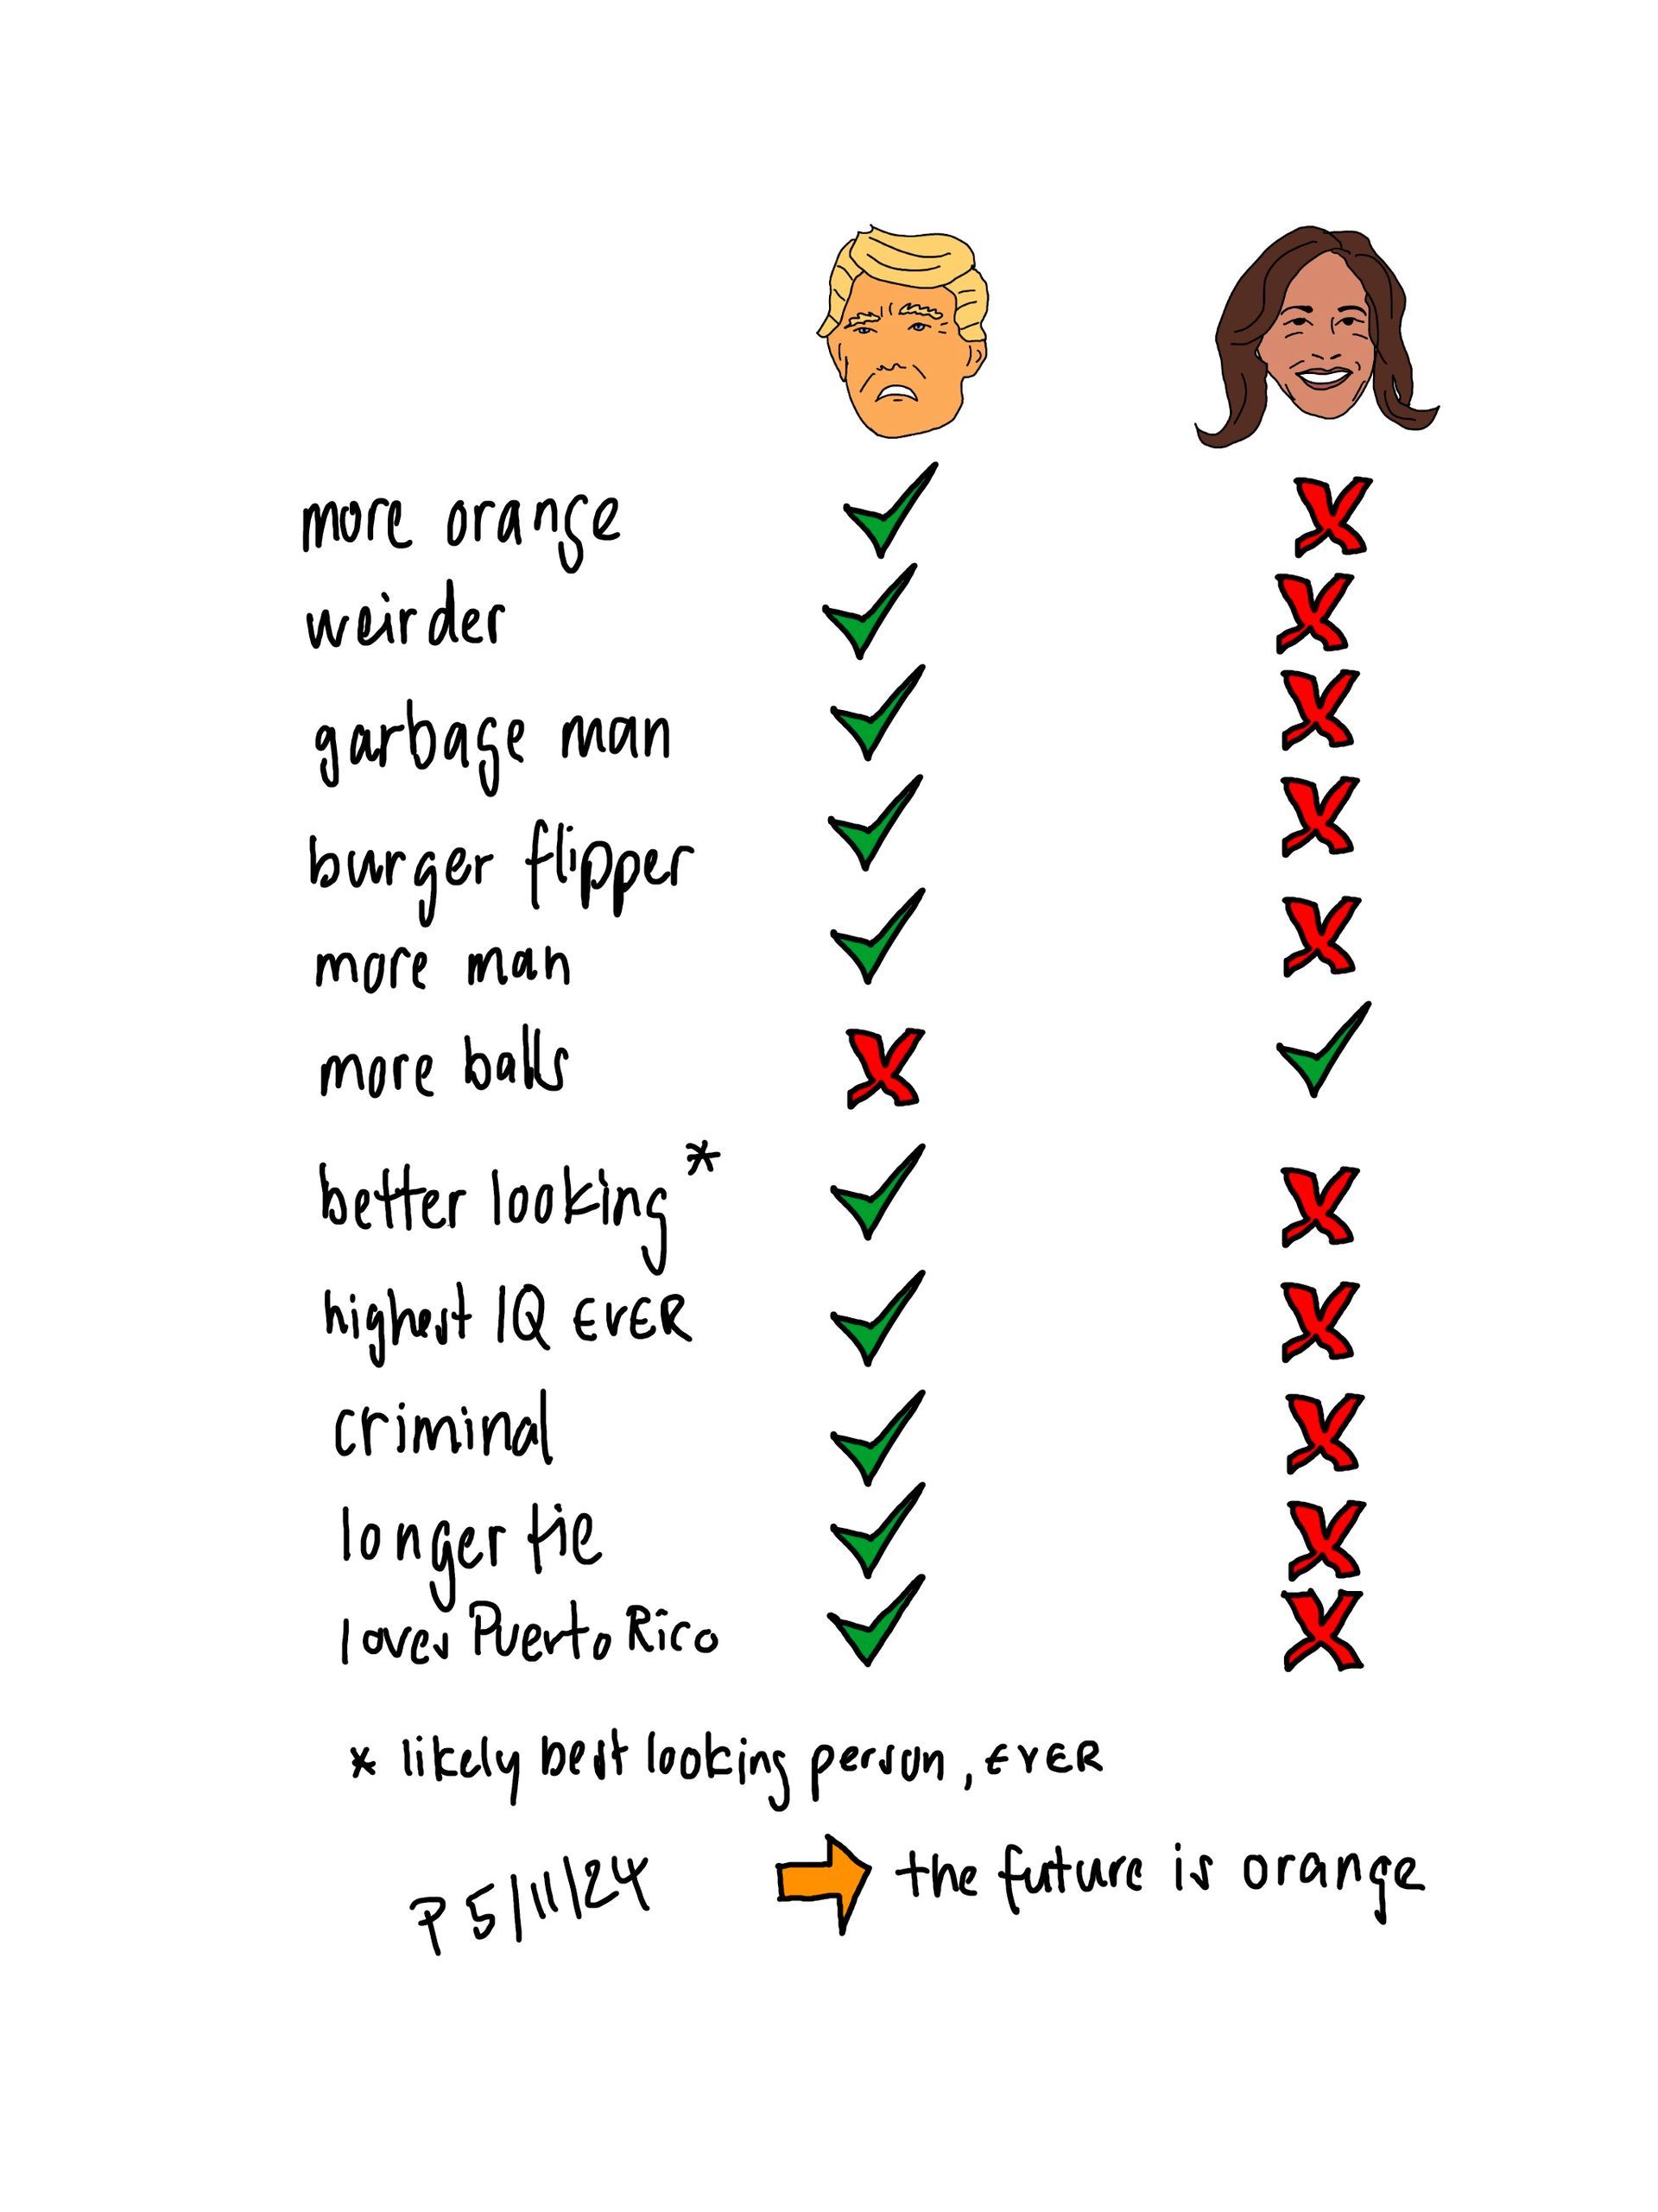 more orange
weirder
garbage man
burger flipper
more man
more balls
better looking*
highest IQ EVER
criminal
longer tie
loves Puerto Rico
* likely best looking person, EVER
P 5/11/24
the future is orange